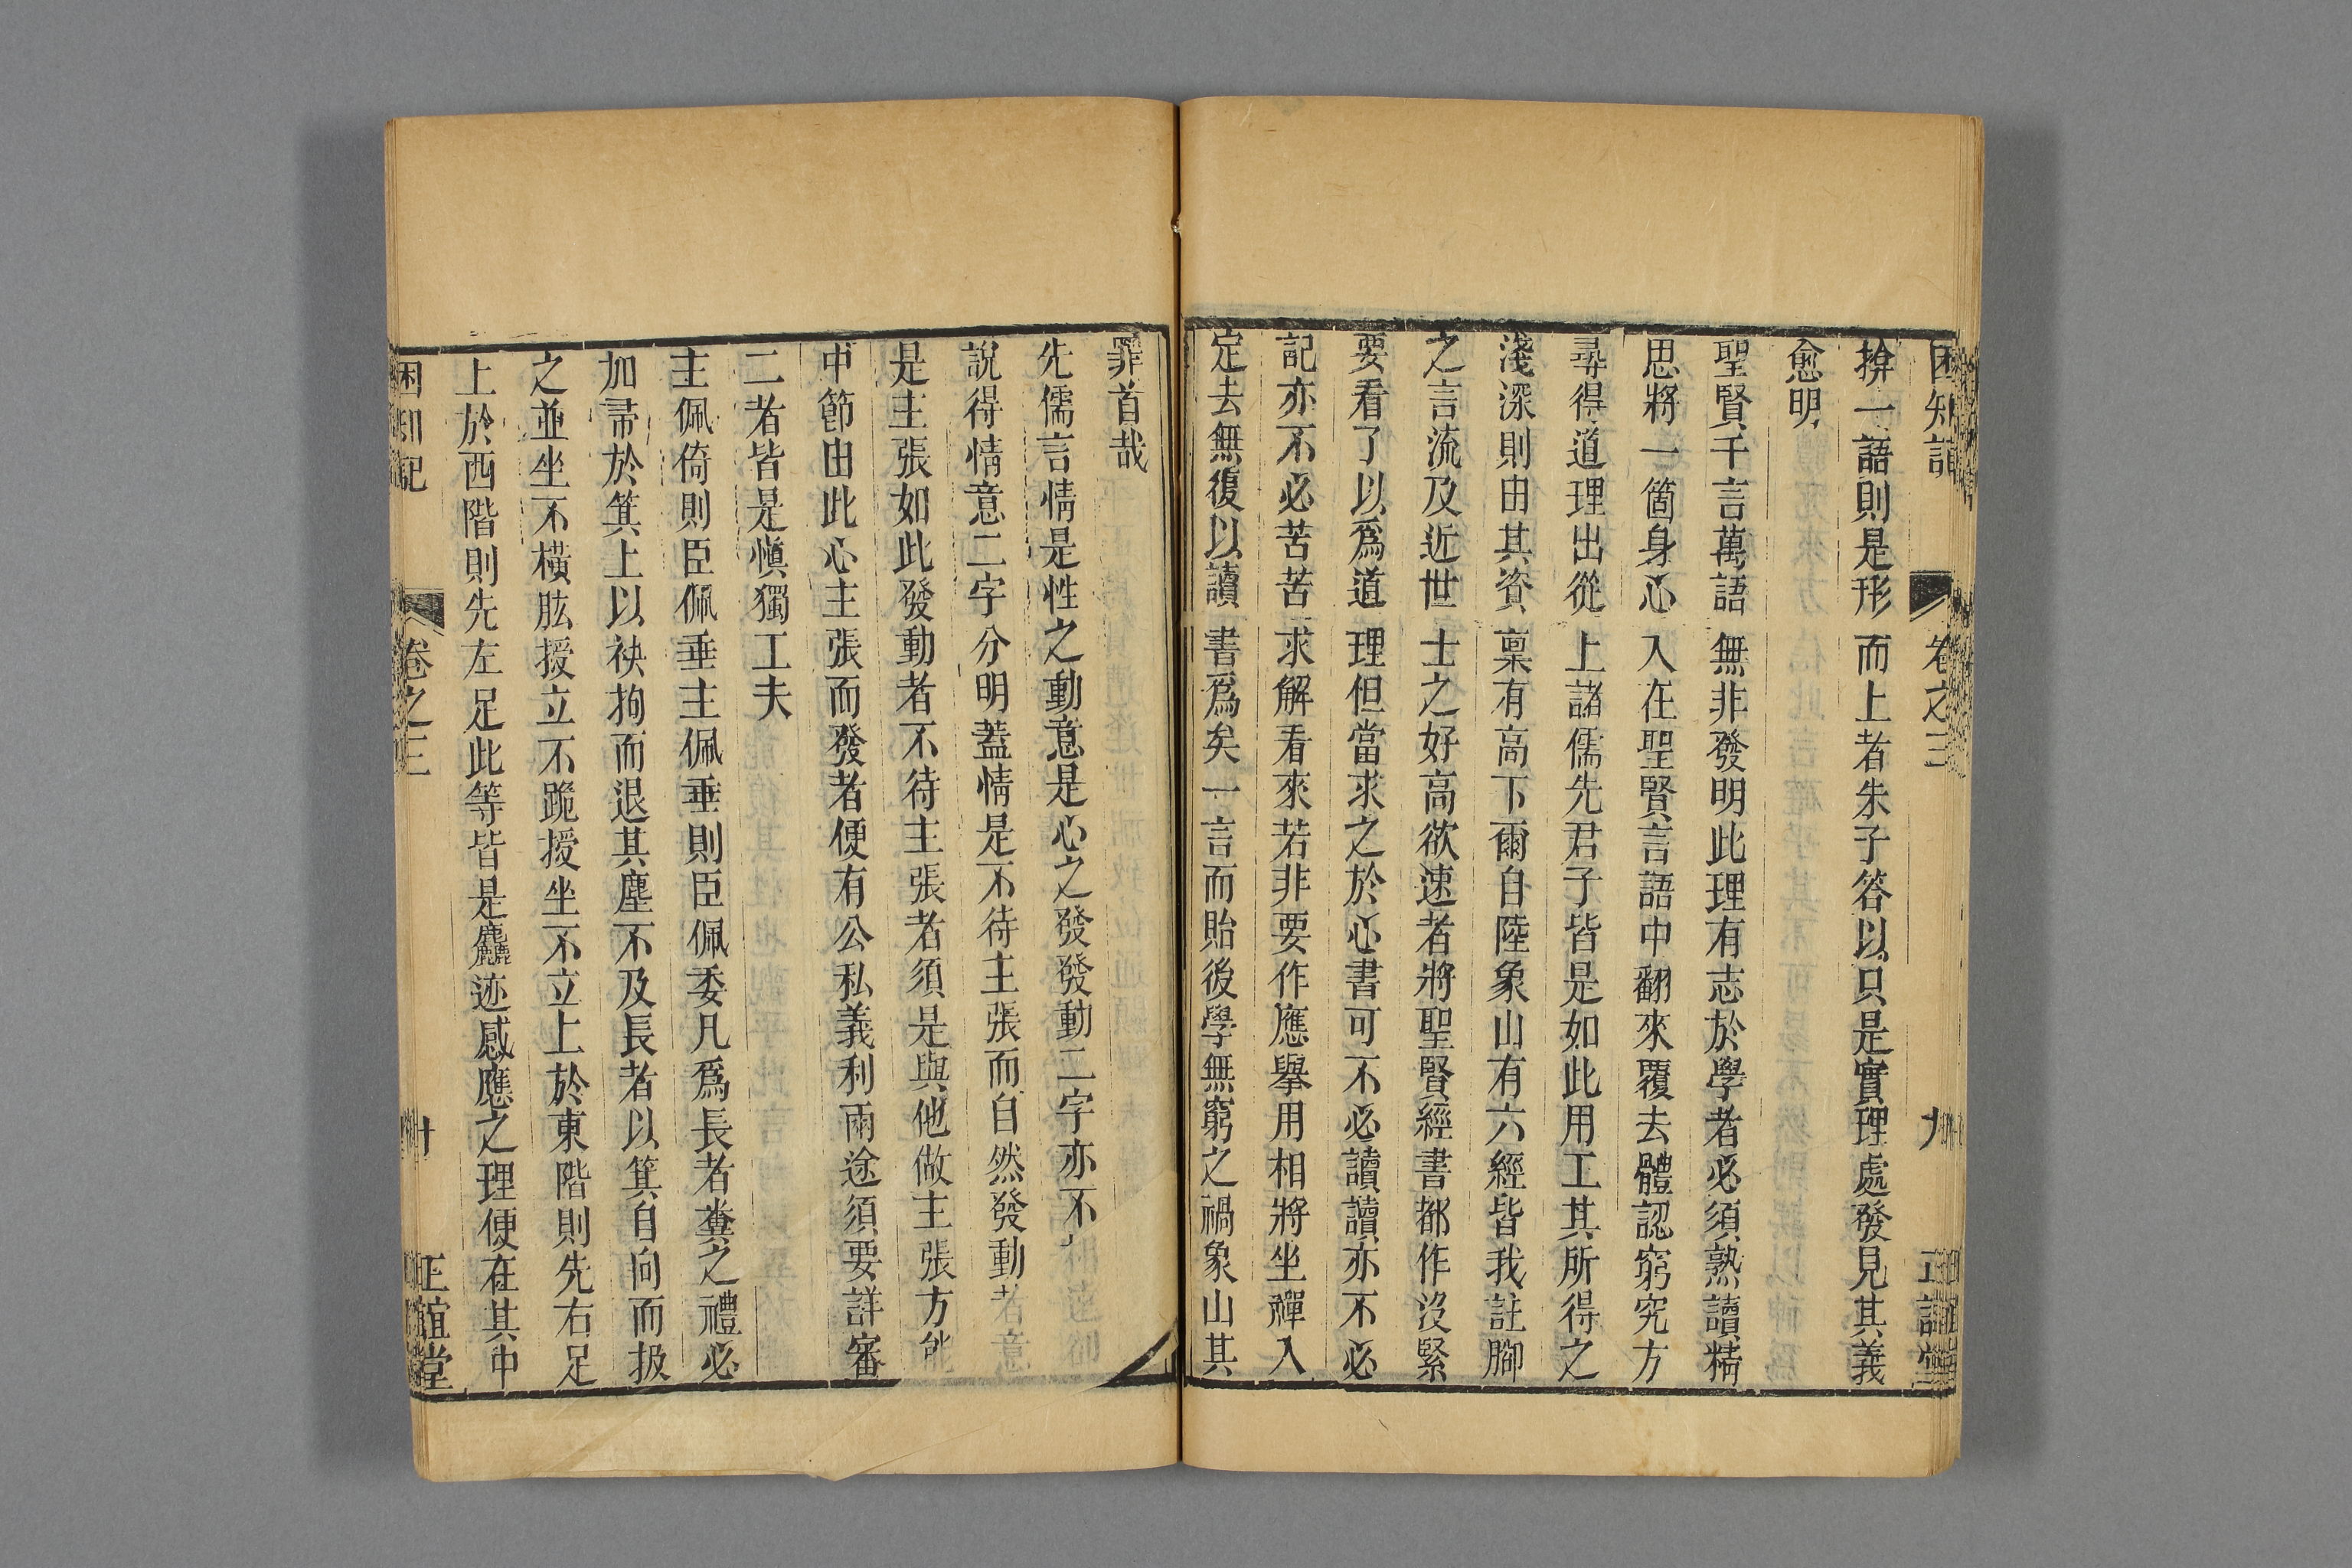 困知記 卷之三 九 正誼堂
揜一語則是形而上者朱子答以只是實理處發見其義
愈明
聖賢千言萬語無非發明此理有志於學者必須熟讀精
思將一箇身心入在聖賢言語中翻來覆去體認窮究方
尋得道理出從上諸儒先君子皆是如此用工其所得之
淺深則由其資稟有高下爾自陸象山有六經皆我註腳
之言流及近世士之好高欲速者將聖賢經書都作沒緊
要看了以爲道理但當求之於心書可不必讀讀亦不必
記亦不必苦苦求解看來若非要作應舉用相將坐禪入
定去無復以讀書爲矣一言而貽後學無窮之禍象山其
罪首哉
先儒言情是性之動意是心之發發動二字亦不
說得情意二字分明蓋情是不待主張而自然發動者意
是主張如此發動者不待主張者須是與他做主張方能
中節由此心主張而發者便有公私義利兩途須要詳審
二者皆是慎獨工夫
主佩倚則臣佩垂主佩垂則臣佩委凡爲長者糞之禮必
加帚於箕上以袂拘而退其塵不及長者以箕自向而扱
之並坐不橫肱授立不跪授坐不立上於東階則先右足
上於西階則先左足此等皆是麤迹感應之理便在其中
困知記 卷之三 十 正誼堂